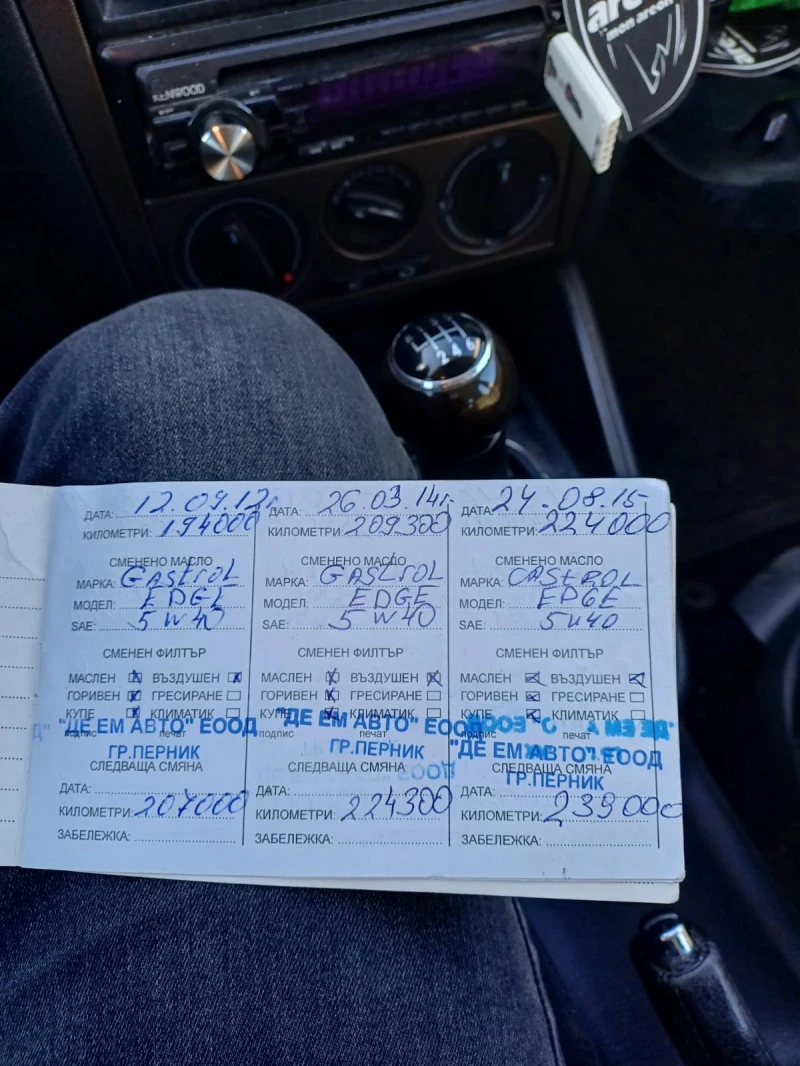 arcon
"mon arcon"
KENWOOD
2 4 6
ДАТА: 12.09.12г.
КИЛОМЕТРИ: 194000
СМЕНЕНО МАСЛО
МАРКА: GASTROL
МОДЕЛ: EDGE
SAE: 5W40
СМЕНЕН ФИЛТЪР
МАСЛЕН ВЪЗДУШЕН
ГОРИВЕН ГРЕСИРАНЕ
КУПЕ КЛИМАТИК
подпис печат
"ДЕ ЕМ АВТО" ЕООД
ГР.ПЕРНИК
СЛЕДВАЩА СМЯНА
ДАТА:
КИЛОМЕТРИ: 207000
ЗАБЕЛЕЖКА:
ДАТА: 26.03.14г.
КИЛОМЕТРИ: 209300
СМЕНЕНО МАСЛО
МАРКА: GASTROL
МОДЕЛ: EDGE
SAE: 5W40
СМЕНЕН ФИЛТЪР
МАСЛЕН ВЪЗДУШЕН
ГОРИВЕН ГРЕСИРАНЕ
КУПЕ КЛИМАТИК
подпис печат
"ДЕ ЕМ АВТО" ЕООД
ГР.ПЕРНИК
СЛЕДВАЩА СМЯНА
ДАТА:
КИЛОМЕТРИ: 224300
ЗАБЕЛЕЖКА:
ДАТА: 24.08.15
КИЛОМЕТРИ: 224000
СМЕНЕНО МАСЛО
МАРКА: CASTROL
МОДЕЛ: EDGE
SAE: 5W40
СМЕНЕН ФИЛТЪР
МАСЛЕН ВЪЗДУШЕН
ГОРИВЕН ГРЕСИРАНЕ
КУПЕ КЛИМАТИК
подпис печат
"ДЕ ЕМ АВТО" ЕООД
ГР.ПЕРНИК
СЛЕДВАЩА СМЯНА
ДАТА:
КИЛОМЕТРИ: 239000
ЗАБЕЛЕЖКА: